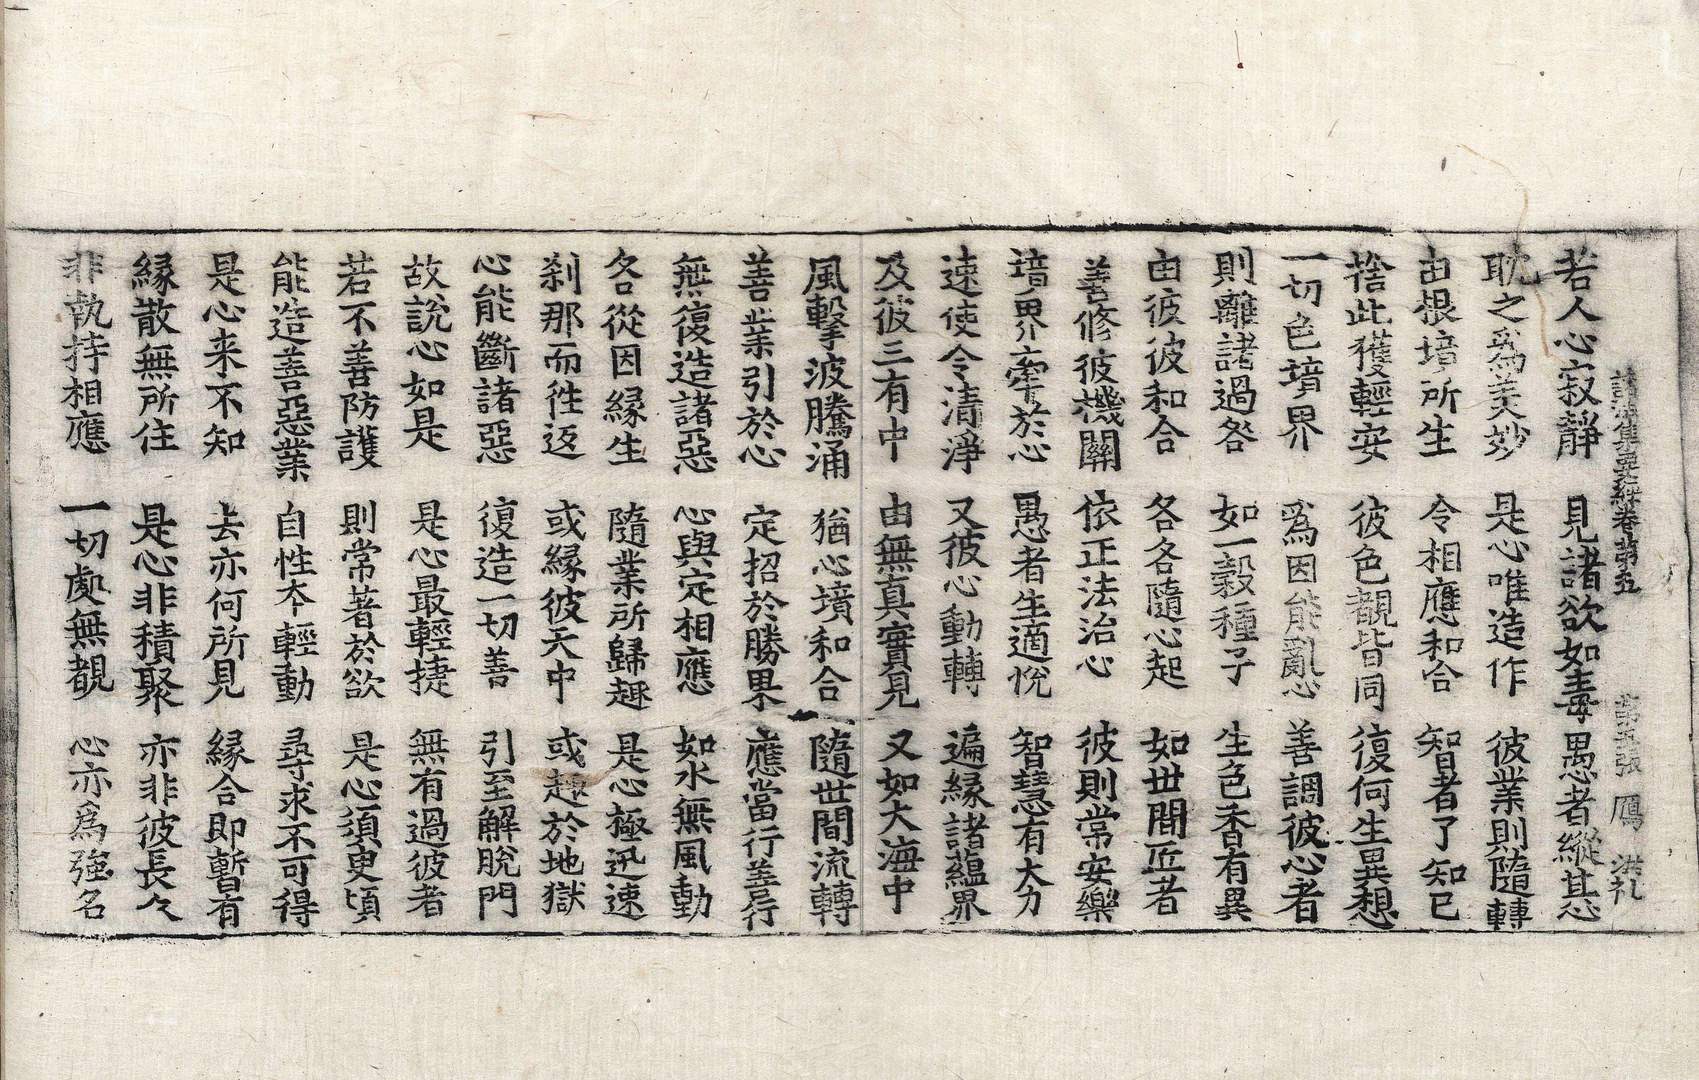 諸法集要經卷第五 第五張 鴈 洪礼
若人心寂靜 見諸欲如毒 愚者縱其心
耽之爲美妙 是心唯造作 彼業則隨轉
由根境所生 令相應和合 智者了知已
捨此獲輕安 彼色覩皆同 復何生異想
一切色境界 爲因能亂心 善調彼心者
則離諸過咎 如一穀種子 生色香有異
由彼彼和合 各各隨心起 如世間匠者
善修彼機關 依正法治心 彼則常安樂
境界牽於心 愚者生適悅 智慧有大力
速使令清淨 又彼心動轉 遍緣諸蘊界
及彼三有中 由無真實見 又如大海中
風擊波騰涌 猶心境和合 隨世間流轉
善業引於心 定招於勝果 應當行善行
無復造諸惡 心與定相應 如水無風動
各從因緣生 隨業所歸趣 是心極迅速
刹那而徃返 或緣彼天中 或趣於地獄
心能斷諸惡 復造一切善 引至解脫門
故說心如是 是心最輕捷 無有過彼者
若不善防護 則常著於欲 是心須臾頃
能造善惡業 自性夲輕動 尋求不可得
是心来不知 去亦何所見 緣合即暫有
緣散無所住 是心非積聚 亦非彼長久
非執持相應 一切處無覩 心亦爲強名